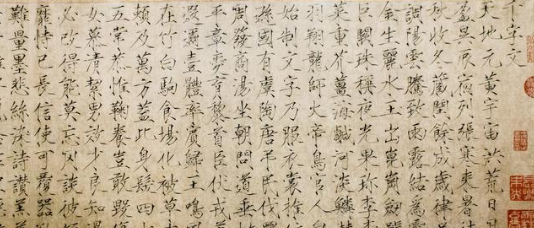 千字文
天地元黃宇宙洪荒日月
盈昃辰宿列張寒暑
秋收冬藏閏餘成歲律呂
調陽雲騰致雨露結為霜
金生麗水玉出崑崗劒號
巨闕珠稱夜光果珍李柰
菜重芥薑海鹹河淡鱗
羽翔龍師火帝鳥官人皇
始制文字乃服衣裳推位
遜國有虞陶唐弔民伐罪
周發商湯坐朝問道垂拱
平章愛育黎首臣伏戎羌
遐邇壹體率賓歸王鳴鳳
在竹白駒食場化被草木
賴及萬方蓋此身髮四大
五常恭惟鞠養豈敢毀傷
女慕貞絜男效才良知過
必改得能莫忘罔談彼短
靡恃己長信使可覆器欲
難量墨悲絲染詩讚羔羊